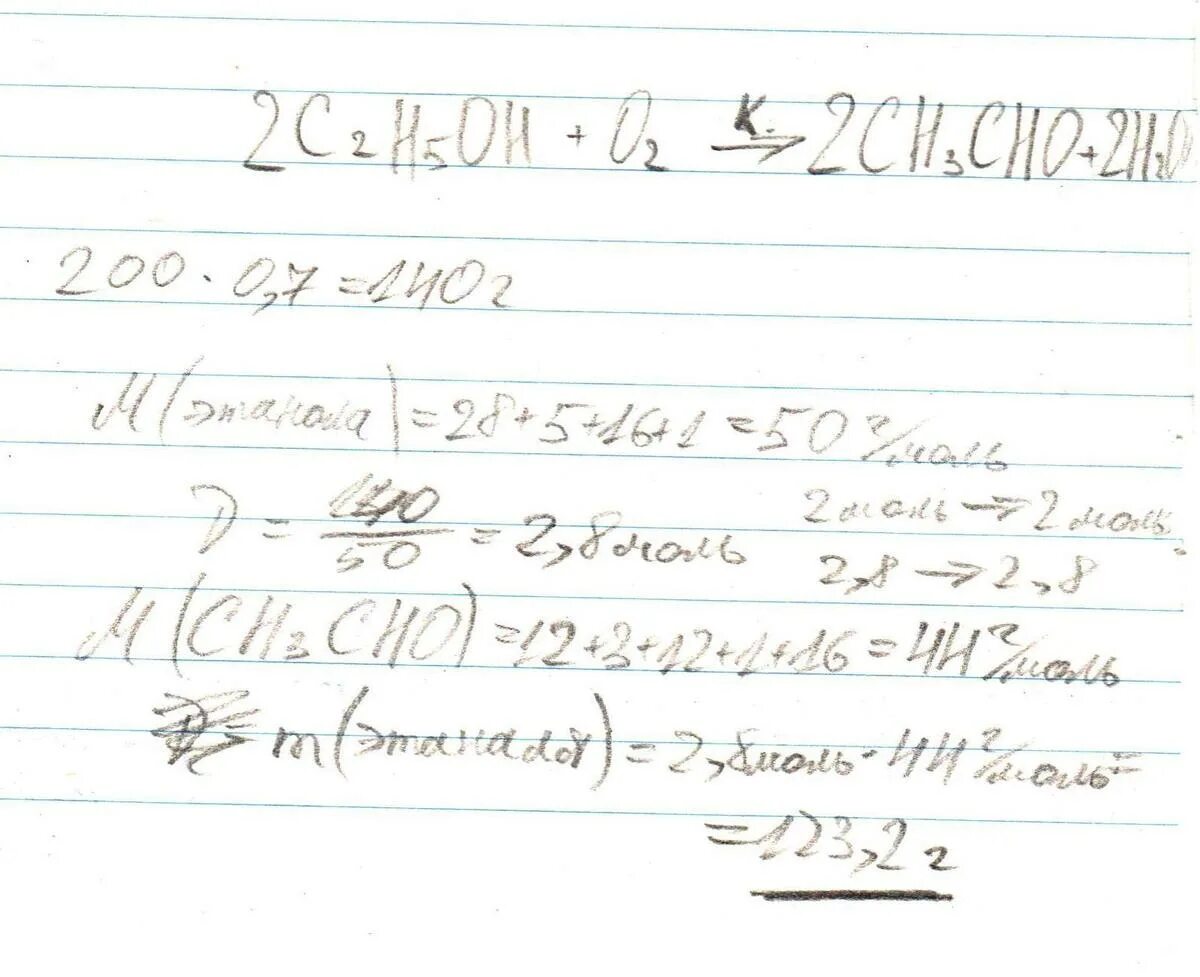 2C₂H₅OH + O₂ →К. 2CH₃CHO + 2H₂O
200 · 0,7 = 140 г
М(этанола) = 28+5+16+1 = 50 г/моль
D = 140/50 = 2,8 моль
2 моль → 2 моль
2,8 → 2,8
М(CH₃CHO) = 12+3+12+1+16 = 44 г/моль
m(этаналя) = 2,8 моль · 44 г/моль =
= 123,2 г